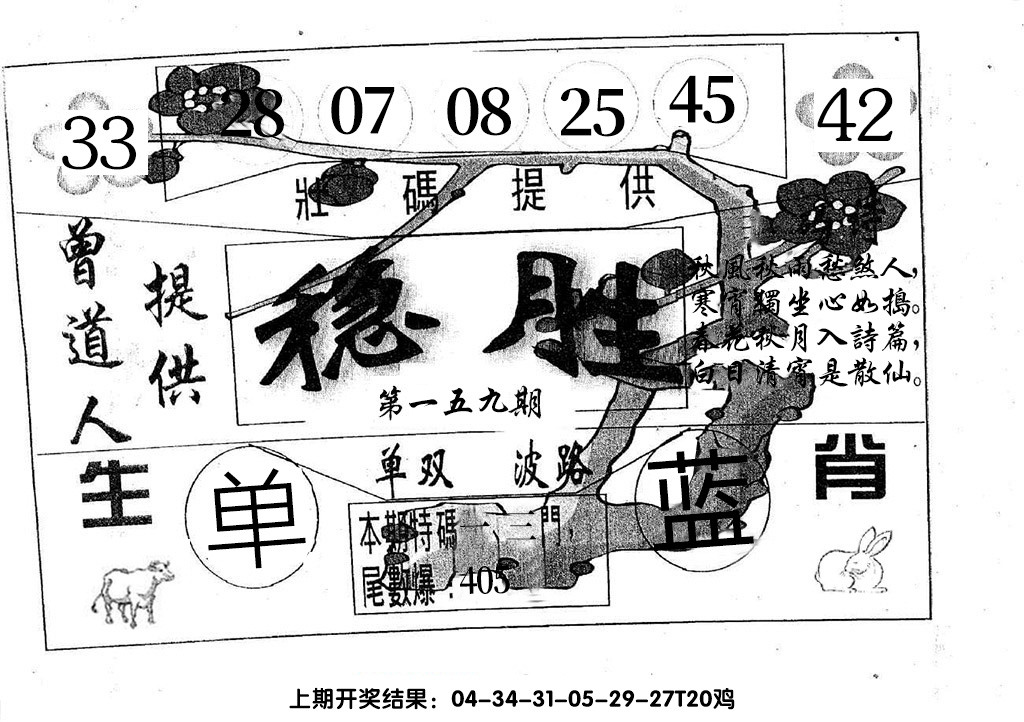 33 28 07 08 25 45 42
壯碼提供
特
曾道人
提供
稳胜
第一五九期
秋風秋雨愁煞人，
寒宵獨坐心如搗。
春花秋月入詩篇，
白日清宵是散仙。
单双 波路
生肖
单
蓝
本期特碼一、三門，
尾數爆：405
上期开奖结果：04-34-31-05-29-27T20鸡